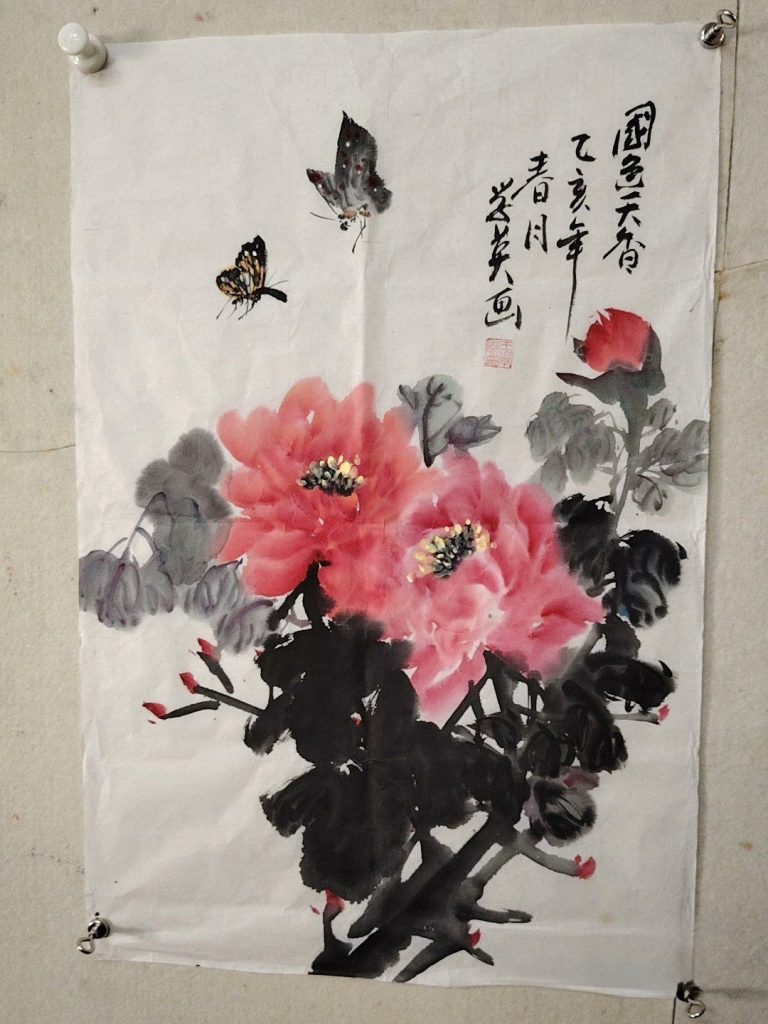 國色天香
乙亥年
春月
英画